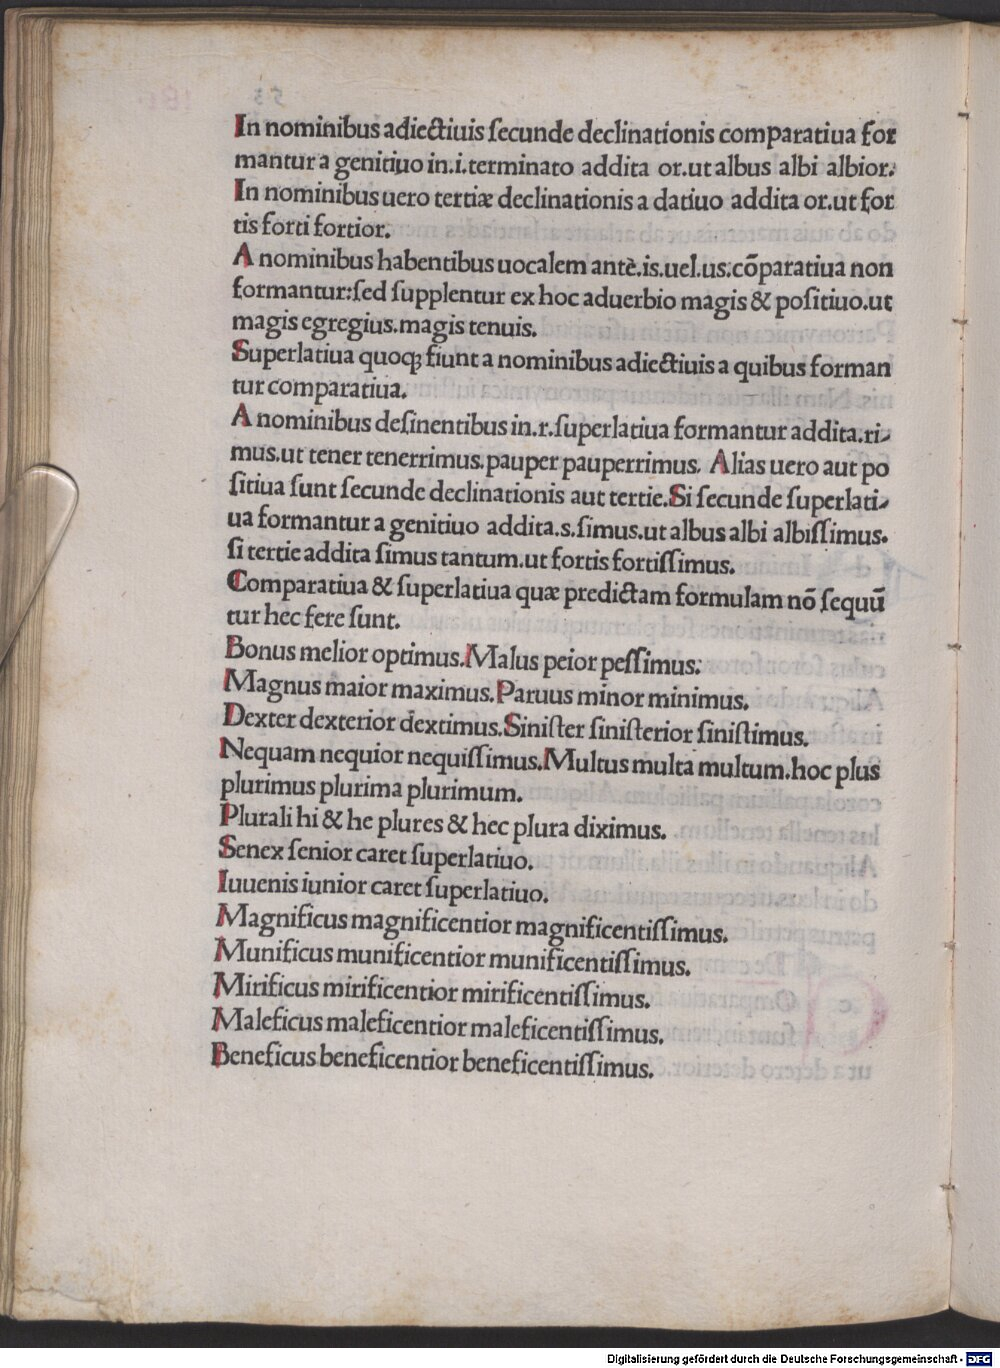 In nominibus adiectiuis ſecunde declinationis comparatiua for
mantur a genitiuo in.i.terminato addita or.ut albus albi albior.
In nominibus uero tertiæ declinationis a datiuo addita or.ut for
tis forti fortior.
A nominibus habentibus uocalem antè.is.uel.us:cõparatiua non
formantur:ſed ſupplentur ex hoc aduerbio magis & poſitiuo.ut
magis egregius.magis tenuis.
Superlatiua quoqꝫ fiunt a nominibus adiectiuis a quibus forman
tur comparatiua.
A nominibus deſinentibus in.r.ſuperlatiua formantur addita.ri-
mus.ut tener tenerrimus.pauper pauperrimus. Alias uero aut po
ſitiua ſunt ſecunde declinationis aut tertie.Si ſecunde ſuperlati-
ua formantur a genitiuo addita.s.ſimus.ut albus albi albiſſimus.
ſi tertie addita ſimus tantum.ut fortis fortiſſimus.
Comparatiua & ſuperlatiua quæ predictam formulam nõ ſequũ
tur hec fere ſunt.
Bonus melior optimus.Malus peior peſſimus:
Magnus maior maximus.Paruus minor minimus.
Dexter dexterior dextimus.Siniſter ſiniſterior ſiniſtimus.
Nequam nequior nequiſſimus.Multus multa multum.hoc plus
plurimus plurima plurimum.
Plurali hi & he plures & hec plura diximus.
Senex ſenior caret ſuperlatiuo.
Iuuenis iunior caret ſuperlatiuo.
Magnificus magnificentior magnificentiſſimus.
Munificus munificentior munificentiſſimus.
Mirificus mirificentior mirificentiſſimus.
Maleficus maleficentior maleficentiſſimus.
Beneficus beneficentior beneficentiſſimus.
Digitalisierung gefördert durch die Deutsche Forschungsgemeinschaft - DFG